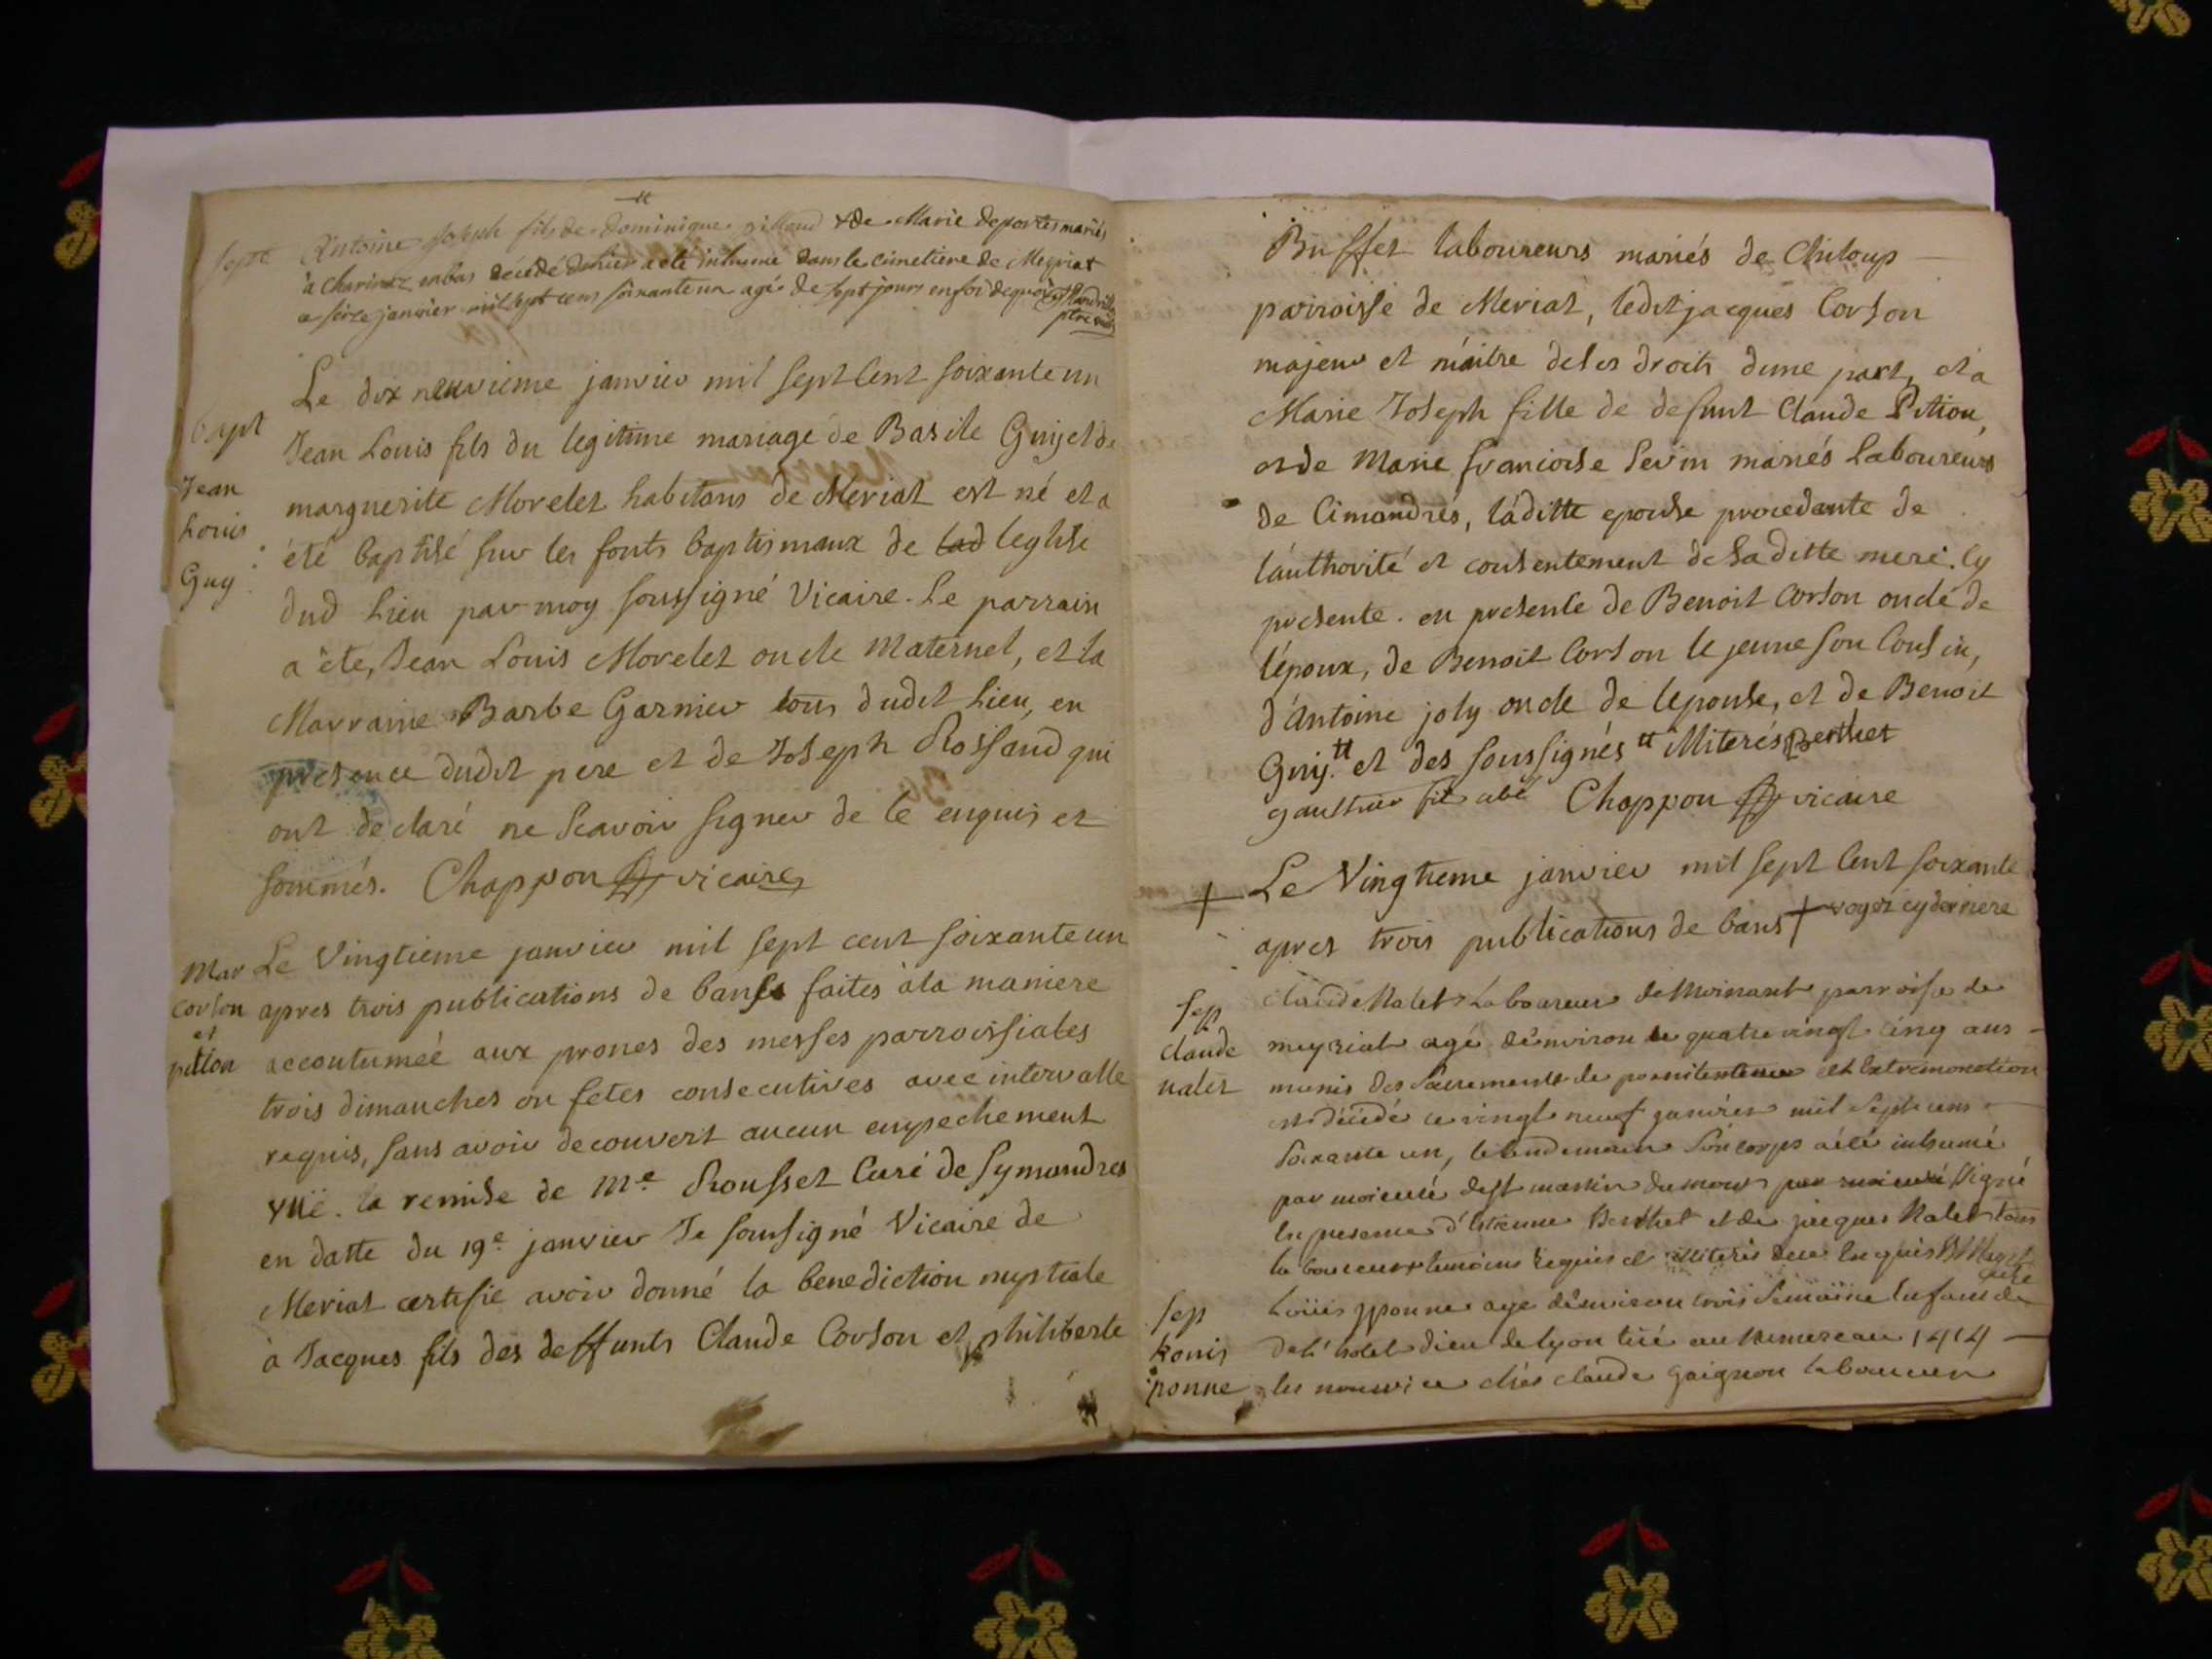 tt
sept Antoine Joseph fils de dominique & de Marie deportes mariés
à Charinaz enbas décédé dehier a eté inhumé dans le cimetiere de Meyriat
a seize janvier mil sept cens soixante un agé de sept jours en foi de quoi
ptre
Le dix neuvieme janvier mil sept cent soixante un
bapt Jean Louis fils du legitime mariage de Basile Guy et de
Jean marguerite Morelet habitans de Meriat est né et a
Louis été baptisé sur les fonts baptismaux de lad leglise
Guy dud lieu par moy soussigné Vicaire. Le parrain
a été, Jean Louis Morelet oncle Maternel, et la
Marraine Barbe Garnier tous dudit lieu, en
presence dudit pere et de Joseph Rossand qui
ont declaré ne scavoir signer de ce enquis et
sommés. Chappon vicaire
Mar Le Vingtieme janvier mil sept cent soixante un
Corson apres trois publications de bans faites à la maniere
et
pition accoutumeé aux prones des messes parroissiales
trois dimanches ou fetes consecutives avec intervalle
requis, sans avoir decouvert aucun empechement
vuë. la remise de Me Rousset Curé de Symandres
en datte du 19e janvier Je soussigné Vicaire de
Meriat certifie avoir donné la benediction nuptiale
à Jacques fils des deffunts Claude Corson et philiberte
Buffet laboureurs mariés de Chiloup
parroisse de Meriat, ledit jacques Corson
majeur et maitre de ses droits dune part, et a
Marie Joseph fille de defunt Claude Pition,
et de Marie francoise Sevin mariés Laboureurs
de Cimandrés, laditte epouse procedante de
l'authorité et consentement de saditte mere. cy
presente. en presence de Benoit Corson oncle de
l'époux, de Benoit Corson le jeune son Cousin,
d'Antoine joly oncle de lepouse, et de Benoit
Guy. tt et des soussignés tt illiterés Berthet
gaulthier Chappon vicaire
+ Le Vingtieme janvier mil sept cent soixante
apres trois publications de bans + voyez cy derriere
Sep claude Nalet Laboureur de Moinant parroisse de
claude meyriat agé d'environ de quatre vingt cinq ans
nalet munis des sacrements de poenitentence et extremonction
est décédé ce vingt neuf janvier mil sept cens
soixante un, le lendemain son corps a été inhumé
par moi curé dest martin du mont par moi curé signé
en presence d'Etienne Berthet et de jacques Nalet tous
laboureurs temoins requis et illiterés de ce enquis
curé
Sep Loüis yponne age d'environ trois semaine enfant de
Louis de l'hotel dieu de lyon tiré au numereau 1414
yponne en nourrice chés claude gaignon laboureur